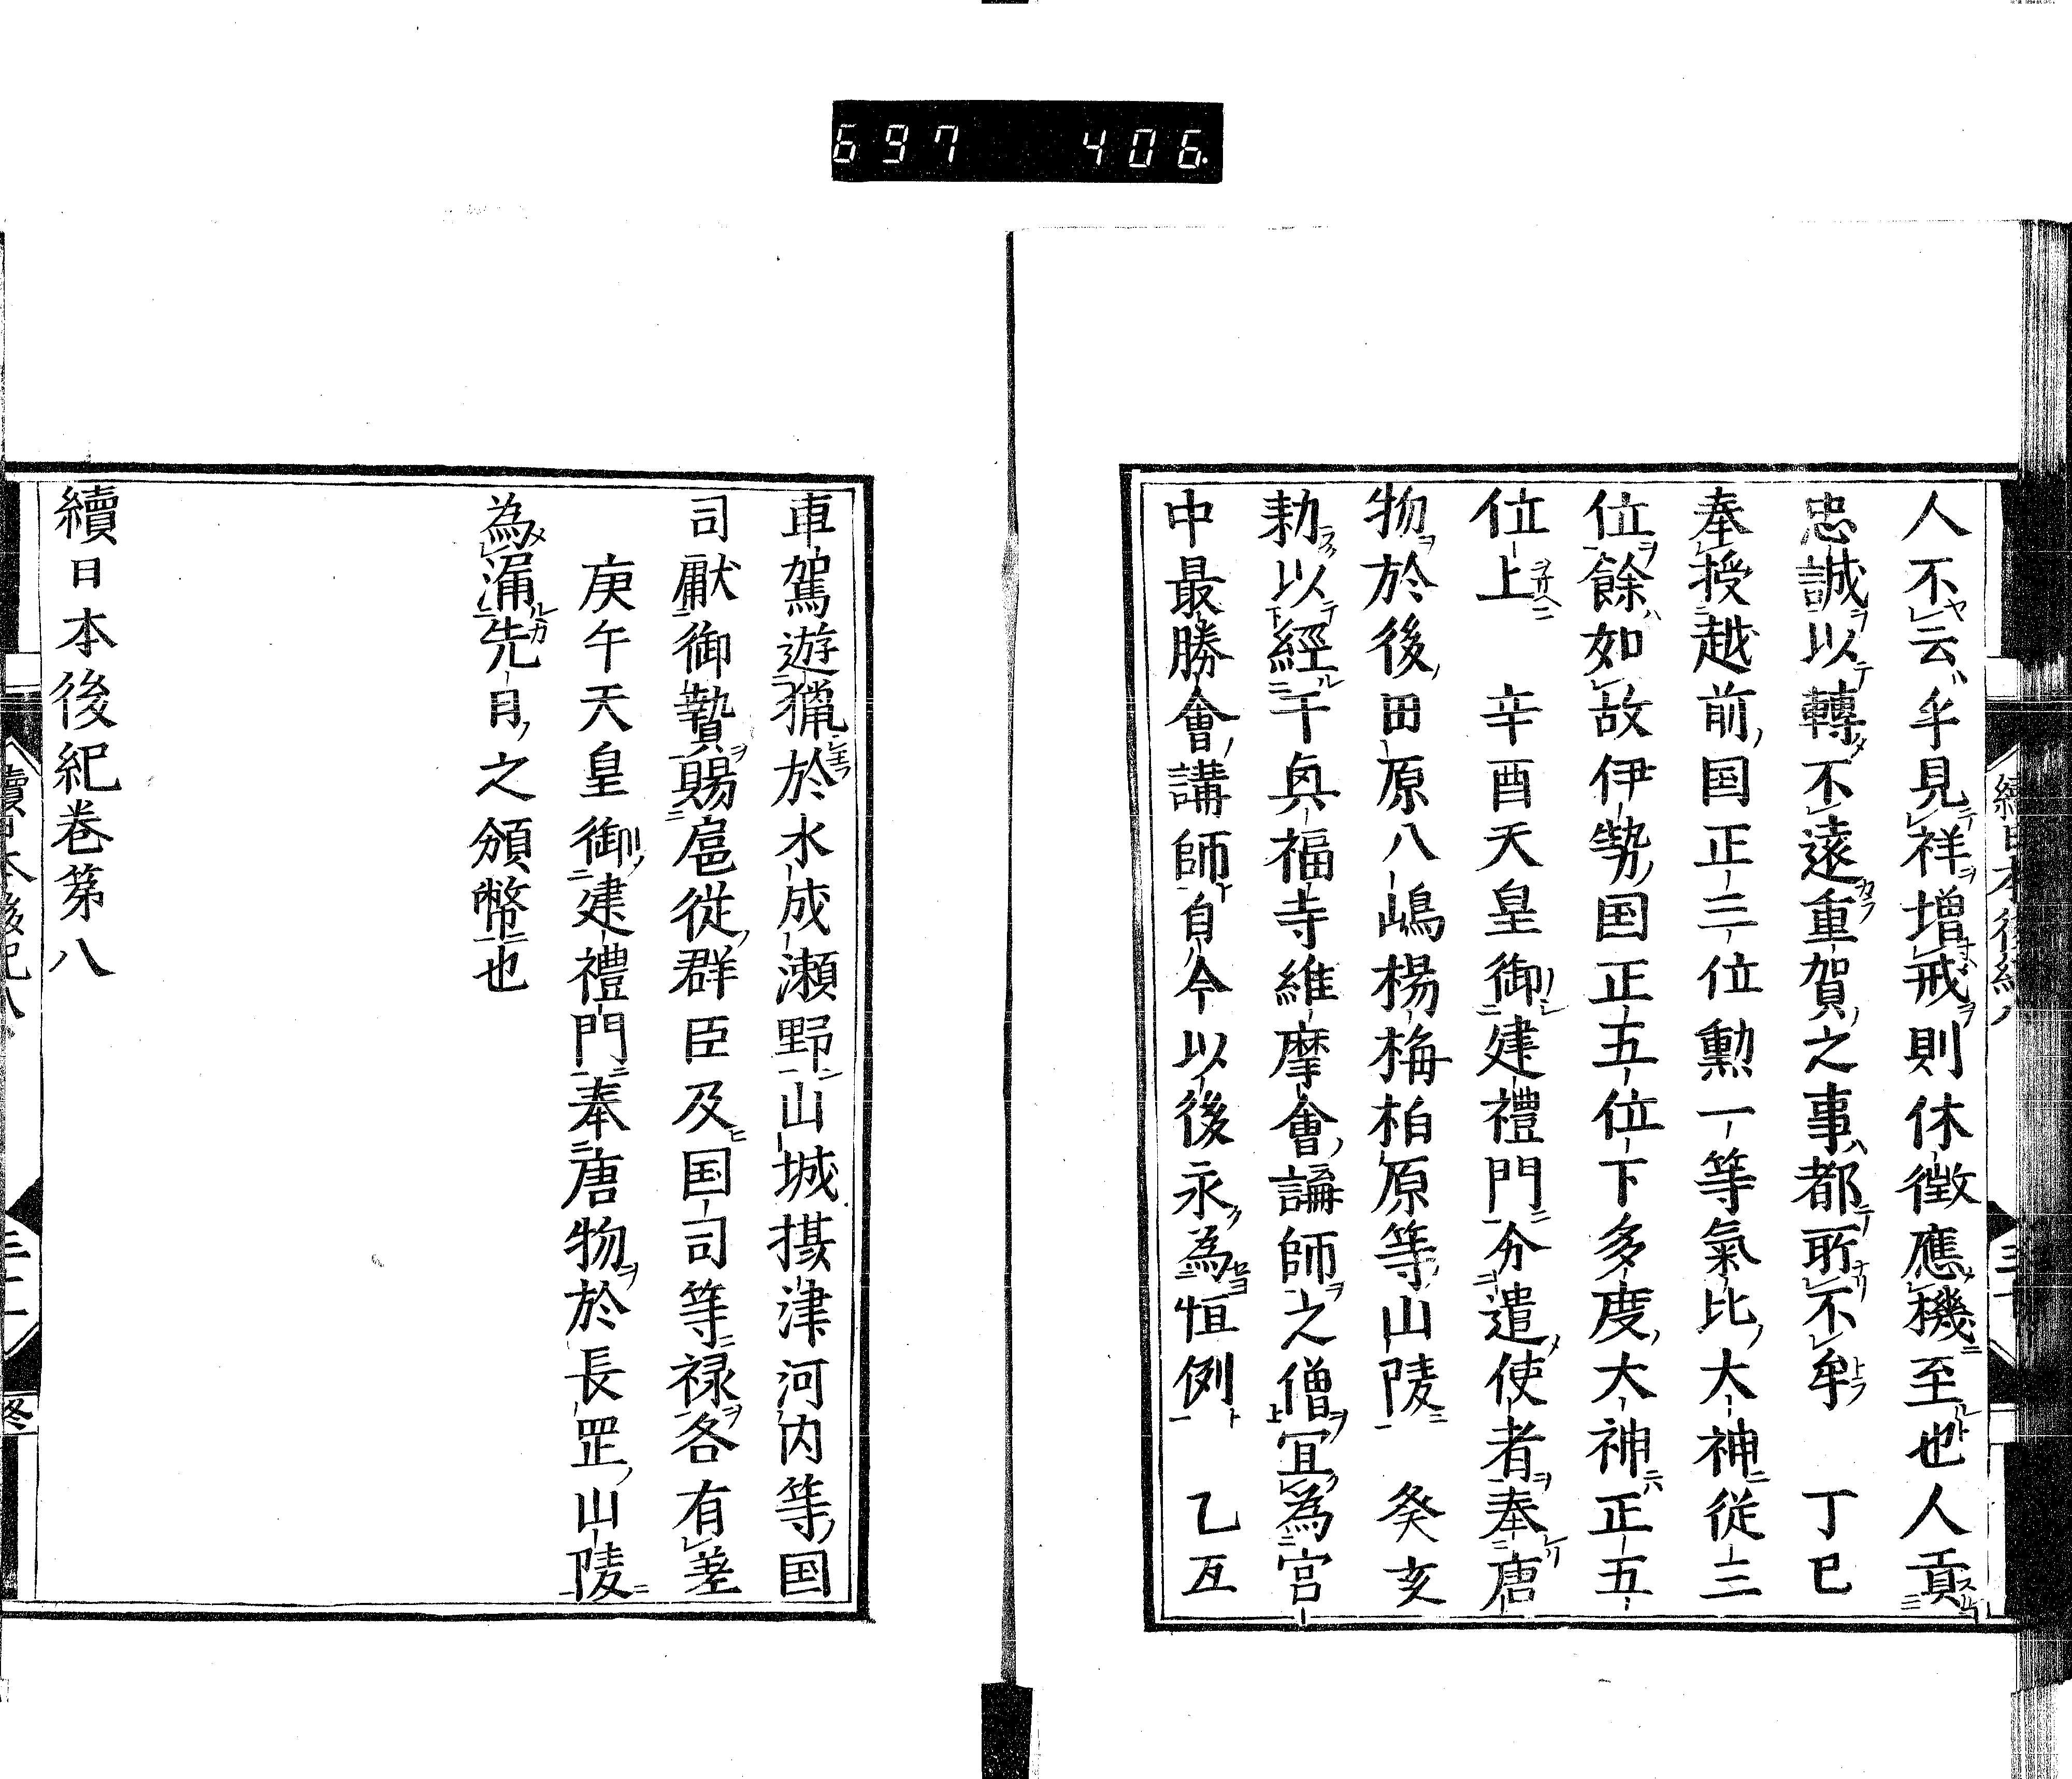 697 406.
人不云乎見祥増戒則休徴應機至也人貢
忠誠以轉不遠重賀之事都所不牟　丁巳
奉授越前国正三位勲一等氣比大神従三
位餘如故伊勢国正五位下多度大神正五
位上　辛酉天皇御建禮門分遣使者奉唐
物於後田原八嶋楊梅柏原等山陵　癸亥
勅以經干興福寺維摩會講師之僧冝為宮
中最勝會講師自今以後永為恒例　乙丑
車駕遊獵於水成瀬野山城摂津河内等国
司獻御贄賜扈從群臣及国司等禄各有差
庚午天皇御建禮門奉唐物於長罡山陵
為漏先日之頒幣也
續日本後紀巻第八